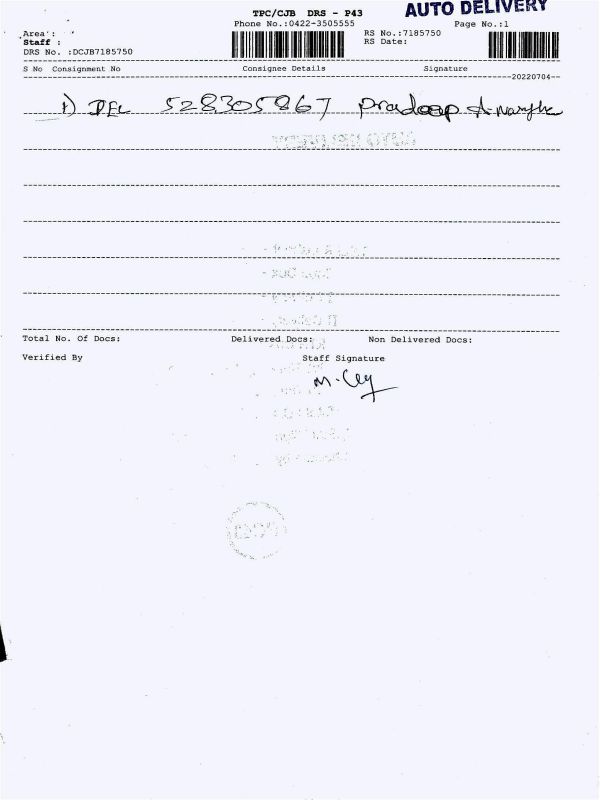 TPC/CJB DRS - P43
AUTO DELIVERY
Phone No.:0422-3505555
Page No.:1
Area :
RS No.:7185750
Staff :
RS Date:
DRS No. :DCJB7185750
S No Consignment No Consignee Details Signature
20220704
1) DEL 528305867 Pradeep
Total No. Of Docs: Delivered Docs: Non Delivered Docs:
Verified By Staff Signature